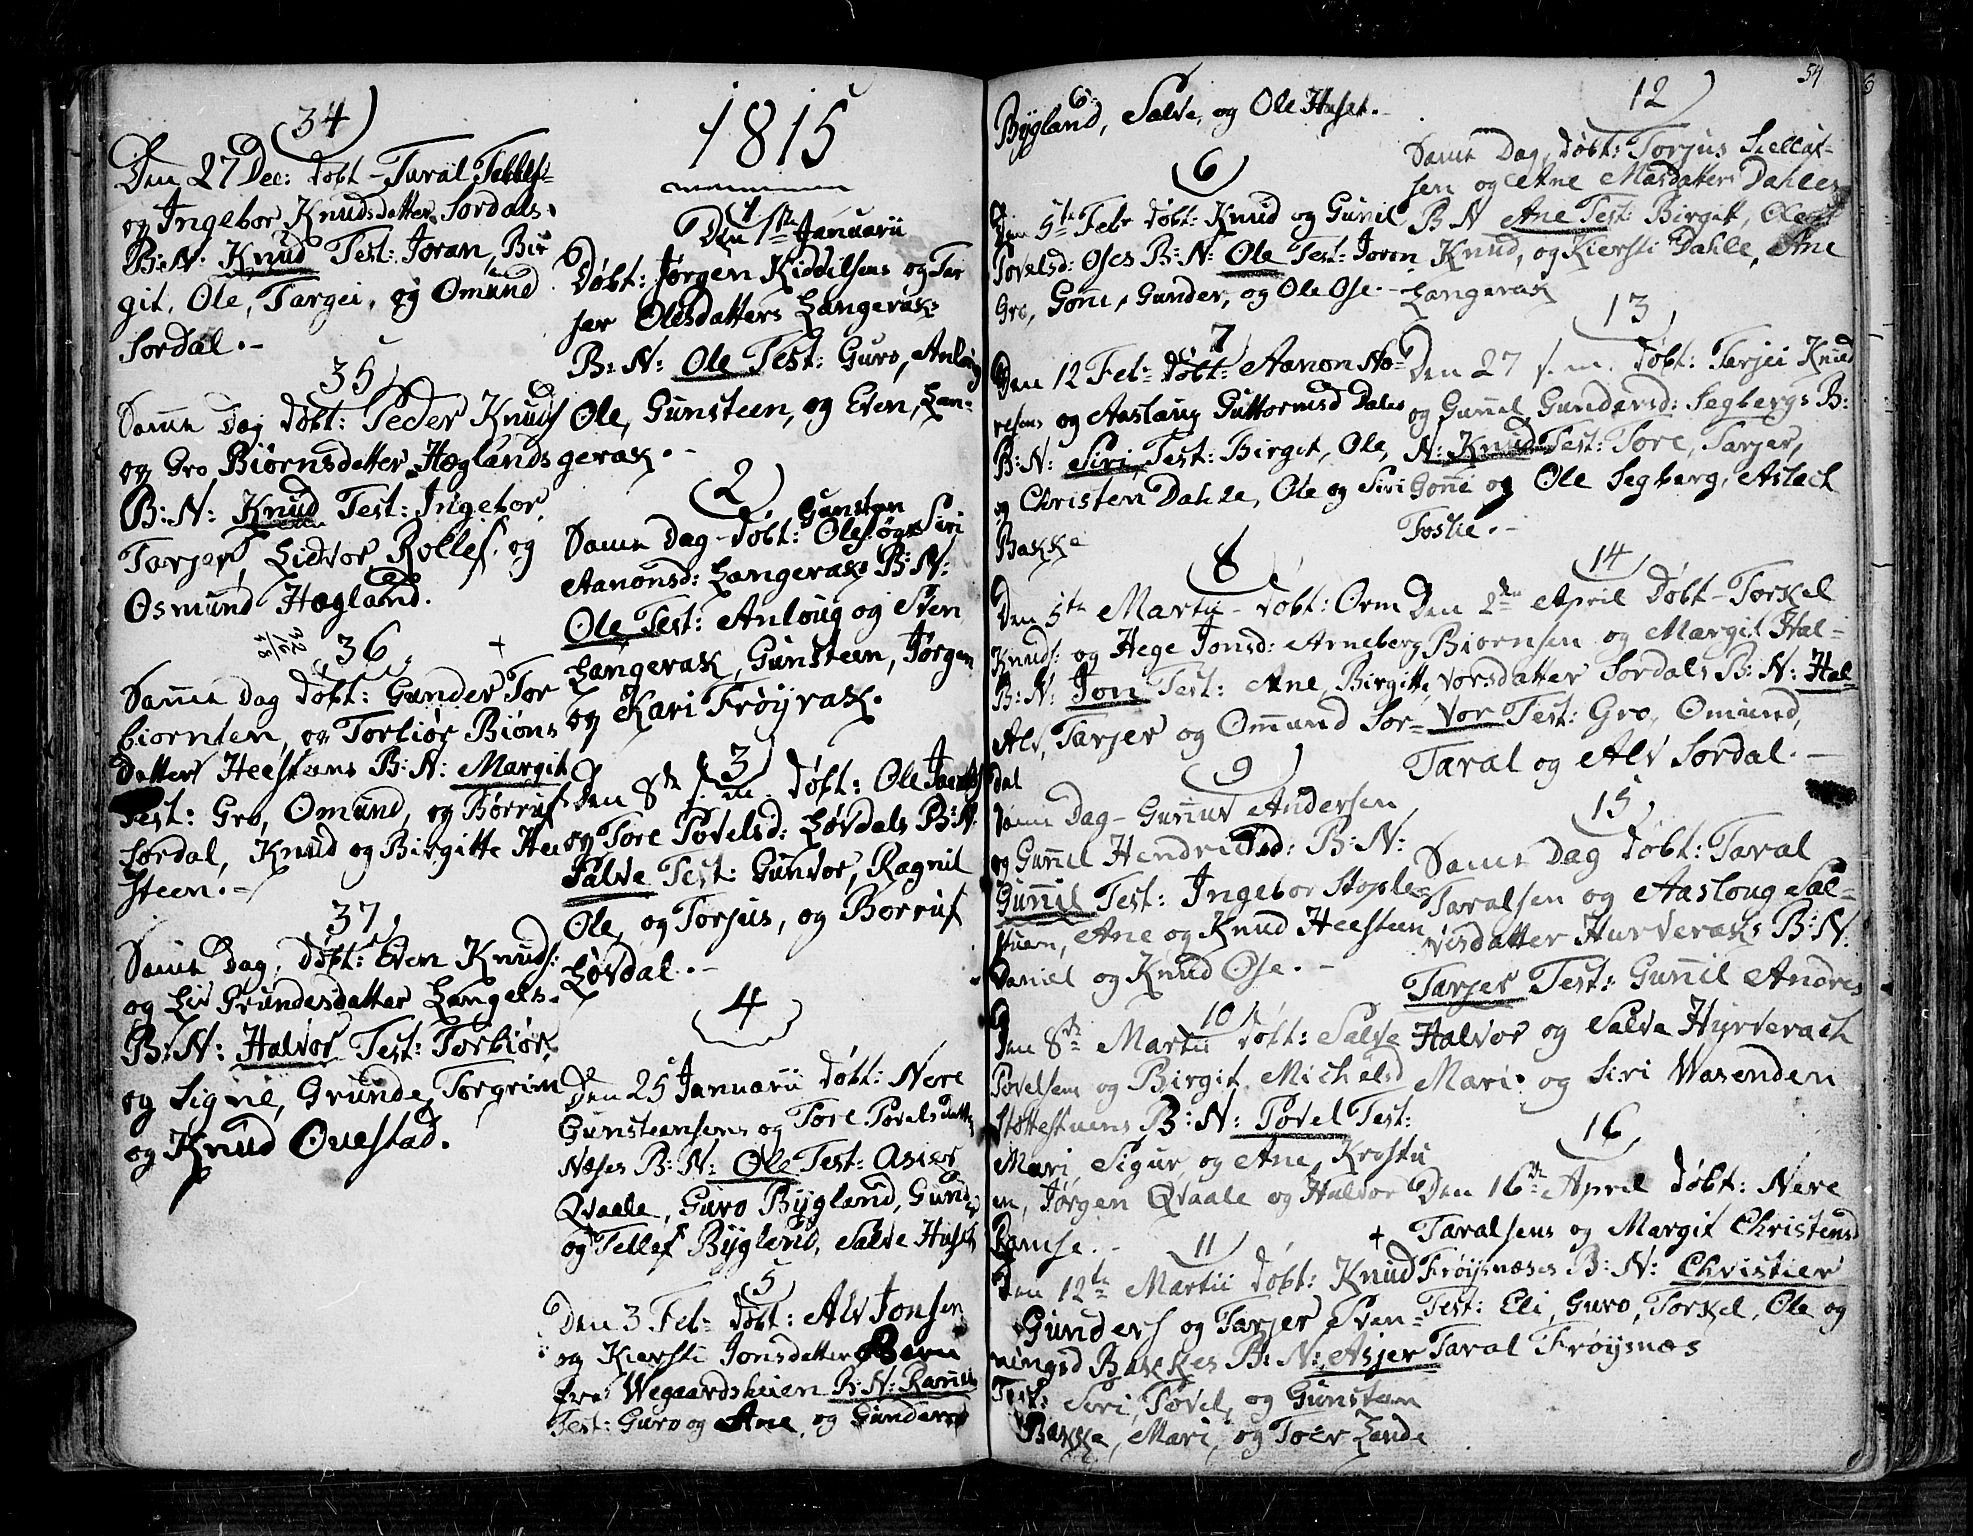 34
Den 27 Dec: døbt - Taral Tellefs:
og Ingebor Knudsdatter Sordals.
B:N: Knud Test: Joran, Bir
git, Ole, Targei, og Omund
Sordal.-
35
Samme Dag døbt: Peder Knuds
og Gro Biørnsdatter Hæglands
B:N: Knud Test: Ingebor
Tarjer, Lidvor, Rollef, og
Osmund Hægland.
36
Samme Dag døbt: Gunder Tor
biornsen, og Torbiør Biøns
datter Heestøns B:N: Margit
Test: Gro, Omund, og Børruf
Sordal, Knud og Birgitte Hee
steen.-
37
Samme Dag, døbt: Even Knuds:
og Liv Grundesdatter Langels.
B:N: Halvor Test: Torbiør
og Signe, Grunde, Torgrim
og Knud Ouestad.
1815
1
Den 1ste Januarii
Døbt: Jørgen Kiddilsens og Tar
jer Olesdatters Langeraks
B:N: Ole Test: Guro, Anloug
Ole, Gunsteen, og Even, Lan-
gerak.-
2
Gunstan
Samme Dag - døbt: Olesøn og Siri
Aanonsd: Langeraks B:N:
Ole Test: Anloug og Even
Langerak, Gunsteen, Jørgen
og Kari Frøyrak.
3
Den 8de s. m. døbt: Ole
og Tore Povelsd: Løvdals B:N:
Salve Test: Gunvor, Ragnil
Ole, og Torjus, og Børruf
Løvdal.-
4
Den 25 Januarii døbt: Nere
Gunsteensens og Tore Povelsdatter
Næses B:N: Ole Test: Asier
Qvaale, Guro Bygland, Gund
og Tellef Bygland, Salve Huset
5
Den 3 Feb: døbt: Alv Jonsen
og Kiersti Jonsdatter Barn
fra Wegaardsheien B:N:
Test: Guro og Ane, og Gunder
54
Bÿgland, Salve, og Ole Huset.-
6
Den 5te Febr døbt: Knud og Gunil
Povelsd: Oses B:N: Ole Test: Joron
Gro, Gonne, Gunder, og Ole Ose.-
7
Den 12 Feb: døbt: Aanon No-
resens og Aaslaug Guttormsd Dales
B:N: Siri, Test: Birgit, Ole,
og Christen Dahle, Ole og Siri
Bakke
8
Den 5te Martij - døbt: Orm
Knuds: og Hege Jonsd: Arneberg
B:N: Jon Test: Ane, Birgitte,
Alv, Tarjer og Ommund Sor-
dal
9
Samme Dag - Gunnuv Andersen
og Gunnil Hendrichsd: B:N:
Gunnil Test: Ingebor Stople
stuen, Ane og Knud Heesteen
Daniel og Knud Ose.-
10
Den 8de Martii døbt: Salve
Povelsen og Birgit Michelsd
Støttestuens B:N: Povel Test:
Mari, Sigur, og Ane, Krostu
en, Jørgen Qvaale og Halvor
Ramse.-
11
Den 12te Martii døbt: Knud
Gunders og Tarjer Sven-
ningsd Bakkes B:N: Asjer
Test: Siri, Povel, og Gunstan
Bakke, Mari, og Toer Lande
12
Samme Dag, døbt: Torjus
sen og Ane Masdatter Dahles
B N Ane Test: Birgit, Ole
Knud, og Kiersti Dahle, Ane
Langerak
13
Den 27 s. m. døbt: Tarjei Knud
og Gunil Gundersd: Segbergs B:
N: Knud Test: Tore, Tarjer,
Gonne og Ole Segberg, Aslach
Foslie.-
14
Den 2den April døbt - Torkel
Biornsen og Margit Hal-
vorsdatter Sordals B:N: Hal-
vor Test: Gro, Omund,
Taral og Alv Sordal.-
15
Samme Dag døbt: Taral
Taralsen og Aasloug Sal-
visdatter Hurveraks B:N:
Tarjer Test: Gunnil Andres
Halvor og Salve Hyrverach
Mari og Siri Wasenden
16
Den 16de April døbt: Nere
Taralsens og Margit Christensd
Frøysnæses B:N: Christier
Test: Eli, Guro, Torkel, Ole og
Taral Frøysnæs